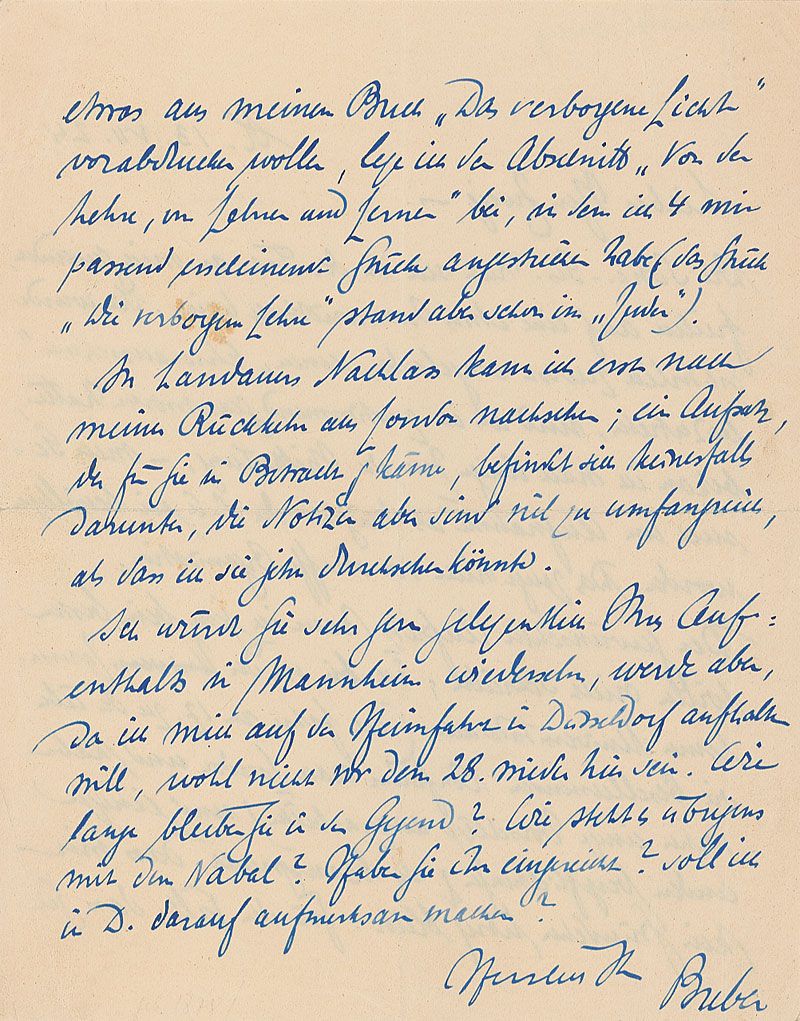 etwas aus meinem Buch „Das verborgene Licht"
vorabdrucken wollen, lege ich den Abschnitt „Von der
Lehre, vom Lehren und Lernen" bei, in dem ich 4 mir
passend erscheinende Stücke angestrichen habe (das Stück
„Die verborgene Lehre" stand aber schon im „Juden").
In Landauers Nachlass kann ich erst nach
meiner Rückkehr aus London nachsehen; ein Aufsatz,
der für Sie in Betracht käme, befindet sich keinesfalls
darunter, die Notizen aber sind viel zu umfangreich,
als dass ich sie jetzt durchsehen könnte.
Ich würde Sie sehr gern gelegentlich Ihres Auf=
enthalts in Mannheim wiedersehn, werde aber,
da ich mich auf der Heimfahrt in Düsseldorf aufhalten
will, wohl nicht vor dem 28. wieder hier sein. Wie
lange bleiben Sie in der Gegend? Wie steht es übrigens
mit dem Nabal? Haben Sie ihn eingereicht? Soll ich
in D. darauf aufmerksam machen?
Herzlich Ihr
Buber